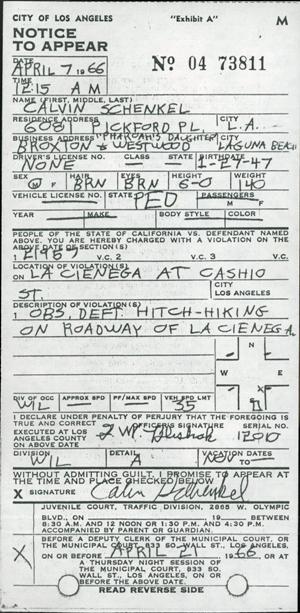 CITY OF LOS ANGELES "Exhibit A" M
NOTICE
TO APPEAR
DATE
APRIL 7 1966 No. 04 73811
TIME
12:15 A M
NAME (FIRST, MIDDLE, LAST)
CALVIN SCHENKEL
RESIDENCE ADDRESS CITY
6081 PICKFORD PL. L.A.
BUSINESS ADDRESS "PHAROAH'S DAUGHTER" CITY
BROXTON & WESTWOOD LAGUNA BEACH
DRIVER'S LICENSE NO. CLASS STATE BIRTHDATE
NONE — — 1-27-47
SEX HAIR EYES HEIGHT WEIGHT
M F BRN BRN 6-0 140
VEHICLE LICENSE NO. STATE PASSENGERS
PED M F
YEAR MAKE BODY STYLE COLOR
PEOPLE OF THE STATE OF CALIFORNIA VS. DEFENDANT NAMED
ABOVE. YOU ARE HEREBY CHARGED WITH A VIOLATION ON THE
ABOVE DATE OF SECTION(S)
1 21957 V.C. 2 V.C. 3 V.C.
LOCATION OF VIOLATION(S)
ON LA CIENEGA AT CASHIO
ST. CITY
LOS ANGELES
DESCRIPTION OF VIOLATION(S)
1 OBS. DEFT. HITCH-HIKING
ON ROADWAY OF LA CIENEGA.
N
W E
S
DIV OF OCC APPROX SPD PF/MAX SPD VEH SPD LMT
WIL 35
I DECLARE UNDER PENALTY OF PERJURY THAT THE FOREGOING IS
TRUE AND CORRECT OFFICER'S SIGNATURE SERIAL NO.
EXECUTED AT LOS
ANGELES COUNTY
ON ABOVE DATE 12010
DIVISION DETAIL VACATION DATES
WIL A NOV TO
WITHOUT ADMITTING GUILT, I PROMISE TO APPEAR AT
THE TIME AND PLACE CHECKED BELOW
X SIGNATURE Calvin Schenkel
JUVENILE COURT, TRAFFIC DIVISION, 2865 W. OLYMPIC
BLVD., ON 19 BETWEEN
8:30 A.M. AND 12 NOON OR 1:30 P.M. AND 4:30 P.M.
ACCOMPANIED BY PARENT OR GUARDIAN.
BEFORE A DEPUTY CLERK OF THE MUNICIPAL COURT, OR
THE MUNICIPAL COURT, 833 SO. WALL ST., LOS ANGELES,
X ON OR BEFORE APRIL 21 1966 OR AT
A THURSDAY NIGHT SESSION OF
THE MUNICIPAL COURT, 833 SO.
WALL ST., LOS ANGELES, ON OR
BEFORE THE ABOVE DATE.
READ REVERSE SIDE